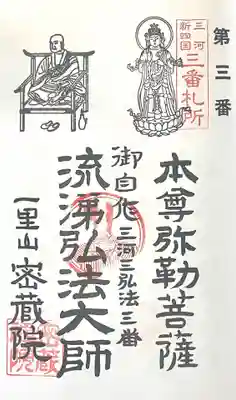 第三番
三河
新四国
三番札所
本尊弥勒菩薩
御自作 三河三弘法三番
流涕弘法大師
一里山 密蔵院